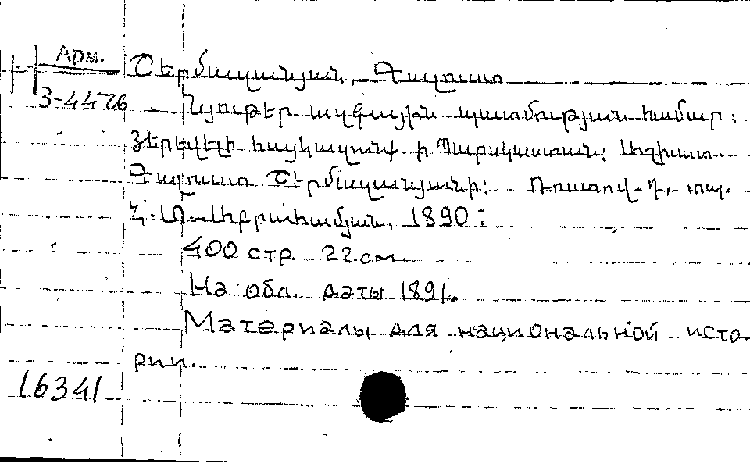 Арм.
3-4426
Շերմազանյան, Գալուստ
Նյութեր ազգային պատմության համար:
Երևելի հայկազունք ի Պարսկաստան: Աշխատ.
Գալուստ Շերմազանյանի: Ռոստով-Դ., տպ.
Հ. Տ. Աբրահամյան, 1890:
400 стр. 22 см.
На обл. даты 1891.
Материалы для национальной исто-
рии.
16341